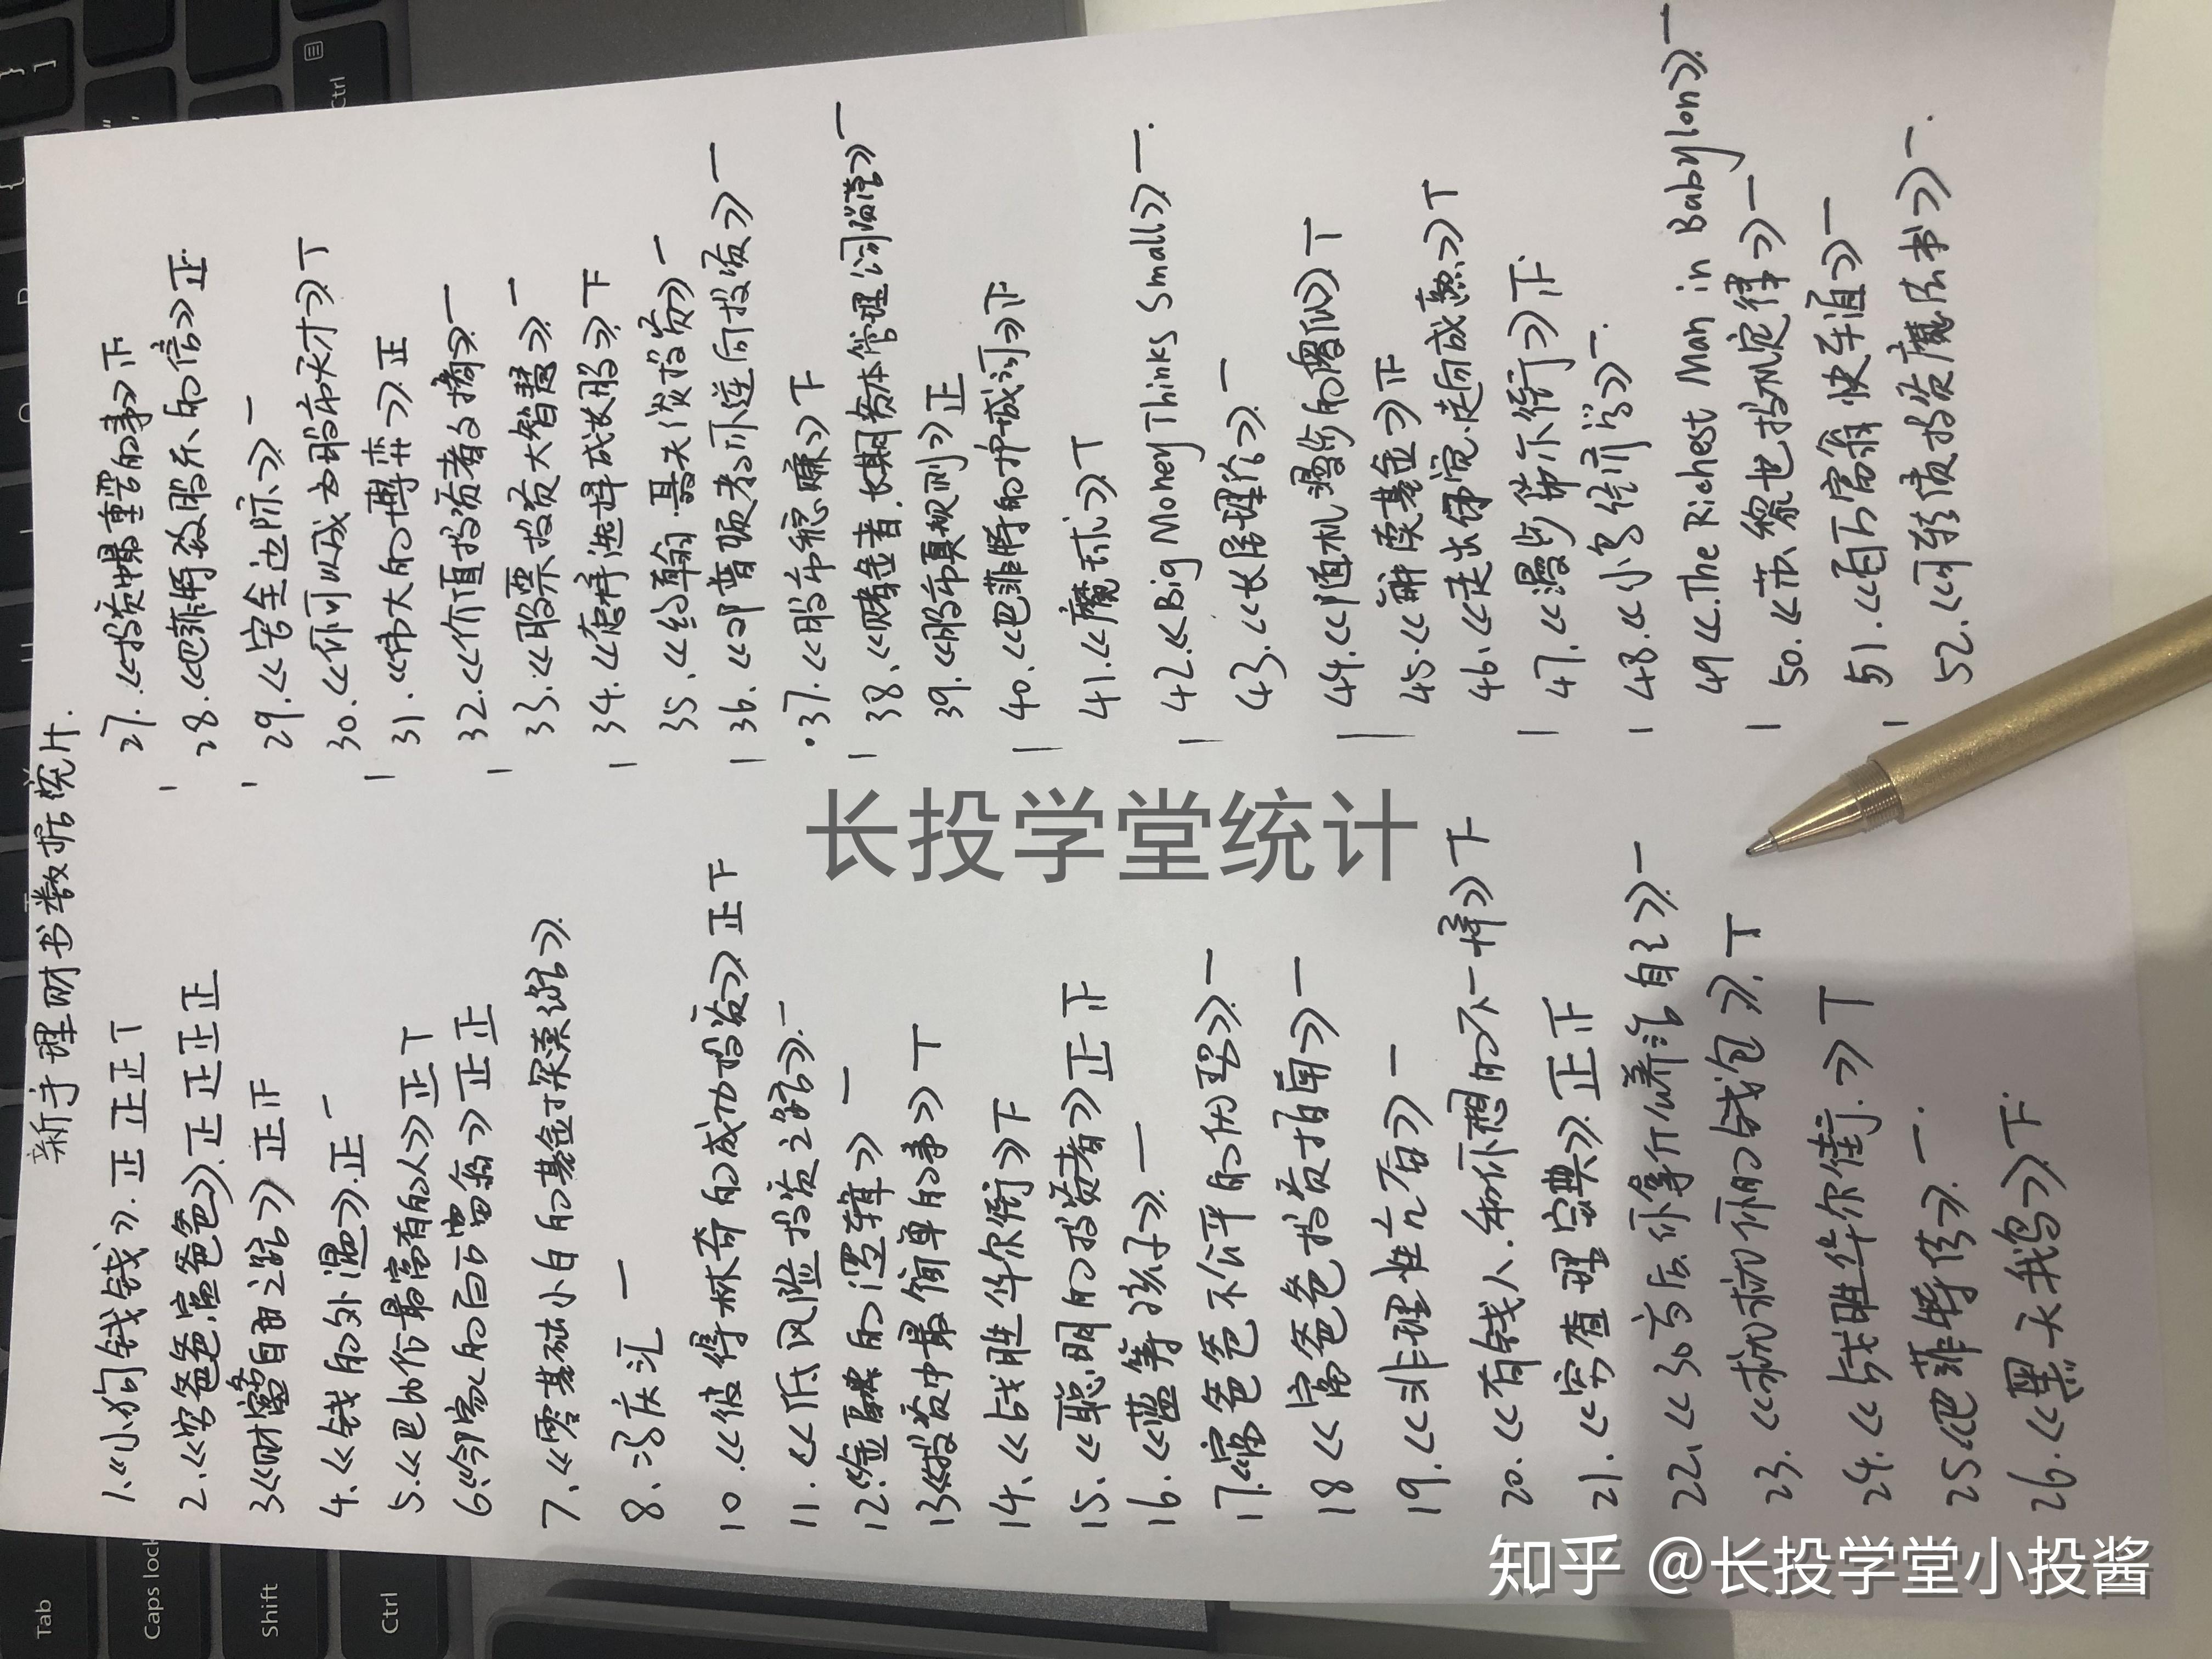 新手理财书数据统计.
1.《小狗钱钱》.正正正丅
2.《穷爸爸富爸爸》.正正正正
3《财富自由之路》正正
4.《钱的外遇》.正一
5.《巴比伦最富有的人》正丅
6.《邻家的百万富翁》正正
7.《零基础小白的基金探索之路》.
8.冯庆汇 一
10.《彼得林奇的成功投资》正下
11.《低风险投资之路》.一
12.《金融的逻辑》一
13《投资中最简单的事》丅
14.《战胜华尔街》下
15.《聪明的投资者》正
16.《蓝筹孩子》.一
17.《富爸爸不公平的优势》.一
18《富爸爸投资指南》一
19.《非理性亢奋》一
20.《有钱人.和你想的不一样》下
21.《穷查理宝典》.正
22.《30岁后你拿什么养活自己》.一
23.《救救你的钱包》.丅
24.《战胜华尔街.》丅
25《巴菲特传》.一.
26.《黑天鹅》下.
27.《投资中最重要的事》下
28.《巴菲特致股东的信》正.
29.《安全边际》一
30.《你可以成为股市天才》丅
31.《伟大的博弈》.正
32.《价值投资者文摘》.一
33.《股票投资大智慧》.一
34.《怎样选择成长股》.下
35.《约翰.聂夫谈投资》一
36.《邓普顿教你逆向投资》一
37.《股市稳赚》下
38.《赌金者.长期资本管理公司》一
39.《股市真规则》正
40.《巴菲特的护城河》
41.《魔式》丅
42.《Big Money Thinks Small》.一.
43.《长尾理论》.一
44.《随机漫步的傻瓜》.丅
45.《解读基金》
46.《走出错觉.走向成熟》丅
47.《漫步华尔街》
48.《小岛经济学》一.
49《The Richest Man in Babylon》.一
50.《苏黎世投机定律》一
51.《百万富翁快车道》一
52.《可转债投资魔法书》一.
长投学堂统计
知乎 @长投学堂小投酱
Tab
Caps lock
Shift
Ctrl
Ctrl